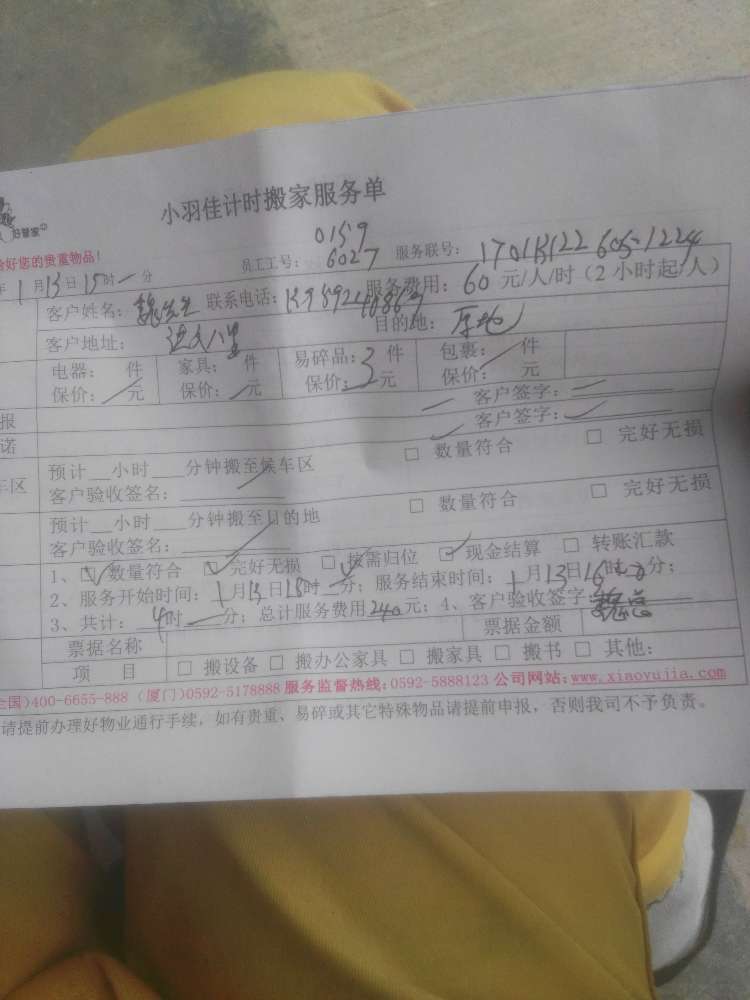 小羽佳计时搬家服务单
好管家
好您的贵重物品!
员工工号: 0159 6027 服务联号:
年1月13日15时一分
客户姓名: 魏先生 联系电话: 服务费用: 60元/人/时(2小时起/人)
客户地址: 目的地: 原地
电器: 件 家具: 件 易碎品: 3件 包裹: 件
保价: 元 保价: 元 保价: 元 保价: 元
报 客户签字:
诺 客户签字:
车区 预计__小时___分钟搬至候车区 □ 数量符合 □ 完好无损
客户验收签名:
预计__小时___分钟搬至目的地 □ 数量符合 □ 完好无损
客户验收签名:
1、☑数量符合 ☑完好无损 ☑按需归位 ☑现金结算 □ 转账汇款
2、服务开始时间: 1月13日 时 分; 服务结束时间: 1月13日16时 分;
3、共计: 4时一分; 总计服务费用240元; 4、客户验收签字:
票据名称 票据金额
项 目 □ 搬设备 □ 搬办公家具 □ 搬家具 □ 搬书 □ 其他:
全国)400-6655-888 (厦门)0592-5178888 服务监督热线:0592-5888123 公司网站:www.xiaoyujia.com
请提前办理好物业通行手续, 如有贵重、易碎或其它特殊物品请提前申报, 否则我司不予负责。